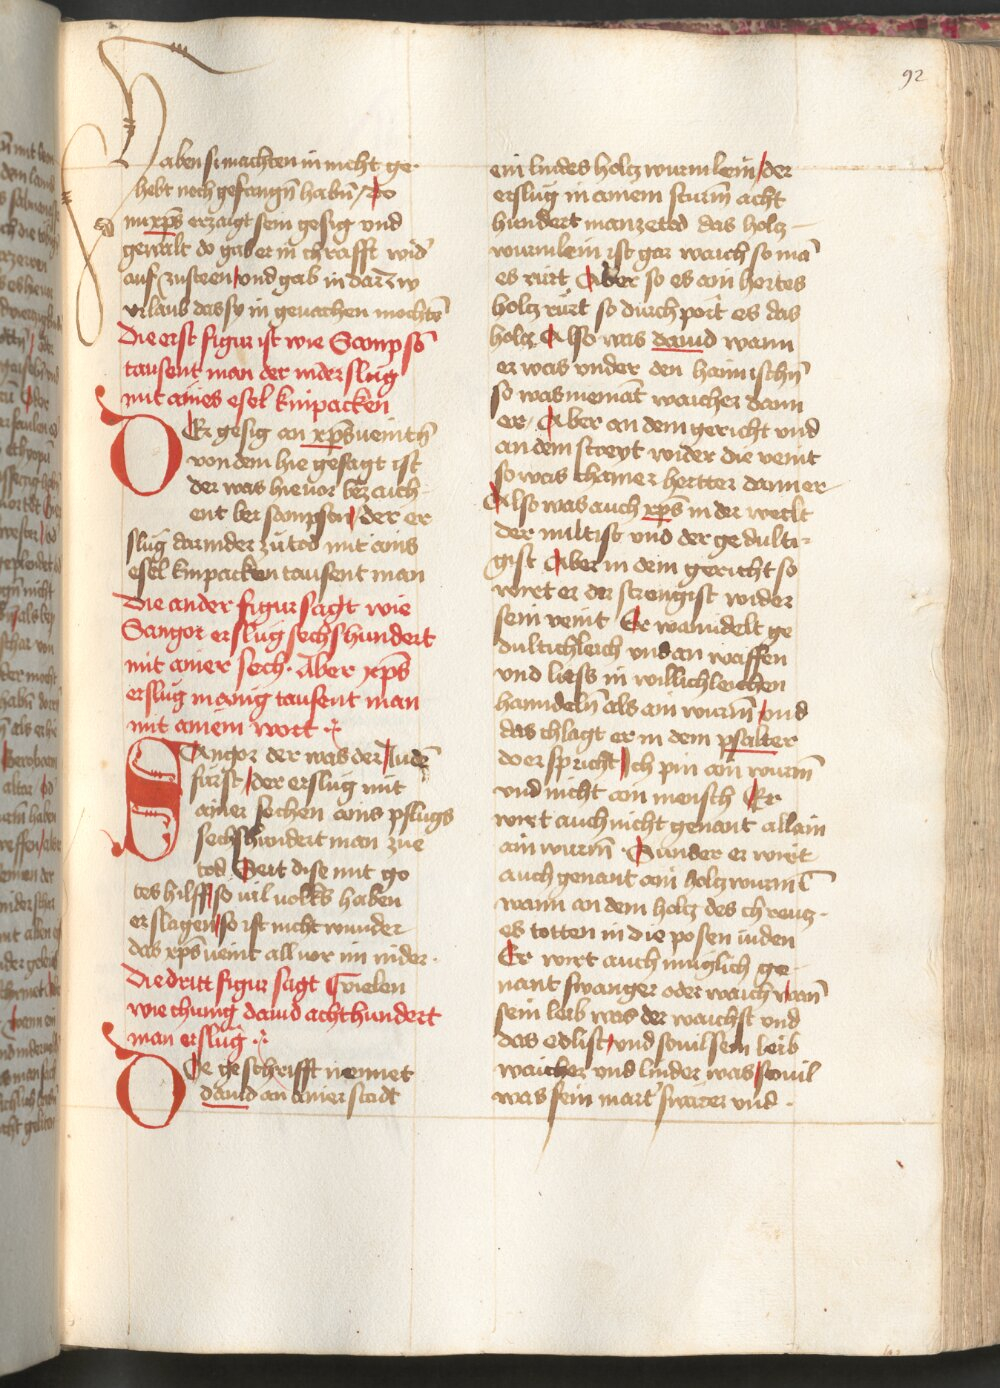 92
Haben si machten in nicht ge-
hebt noch gefangn̄ habn̄ / Do
nu xp̄s erzaigt sein gesig vnd
gewalt do gab er in chrafft wid̄
auf zusteen / vnd gab in darzw
vrlaub das sy in geuachen mochtn̄
Die erst figur ist wie Sampsō
tausent man der nider slug
mit aines esel kinpacken
DEr gesig an xp̄s veintn̄
von dem hie gesagt ist
der was hieuor bezaich
ent ber sampson / der er
slug darnider zu tod mit ains
esel kinpacken tausent man
Die ander figur sagt wie
Sangor erslug sechshundert
mit ainer sech. Aber xp̄s
erslug manig tausent man
mit ainem wort
SAngor der was der Iudn̄
fürst / der erslug mit
ainer sechen ains pflugs
sechshundert man zue
tod Seit dise mit go
tes hilff / so vil volks haben
erslagen / so ist nicht wunder
das xp̄s veint all vor im nider.
Die dritt figur sagt Gvielen
wie chunig dauid achthundert
man erslug
DIe geschrifft nennet
dauid an ainer stadt
ein lindes holtz wurmlein / der
erslug in ainem sturm acht
hundert man zetod das holtz-
wurmlein ist gar waich so mā
es rürt Aber so es ain hertes
holtz rürt so durchport es das
holtz Also was dauid wann
er was vnder den haimischn̄
so was niemāt waicher dann
er / Aber an dem gericht vnd
an dem streyt wider die veint
so was chainer hertter dann er
Also was auch xp̄s in der werlt
der miltist vnd der gedulti-
gist Aber in dem gericht so
wirt er der strengist wider
sein veint Er wanndelt ge
dultichleich vnd an waffen
vnd liess in willichleichen
hanndeln̄ als ain wurm̄ / vnd
das chlagt er in dem psalter
do er spricht / Ich pin ain wurm̄
vnd nicht ain mensch Er
wirt auch nicht genant allain
ain wurm̄ Sunder er wirt
auch genant ain holtzwurm̄
wann an dem holtz des chreutz-
es totten in die posen iuden
Er wirt auch muglich ge
nant swanger oder waich / wan̄
sein leib was der waichst vnd
das edlist / vnd souil sein leib
waicher vnd linder was / souil
was sein mart̄ swarer vnd